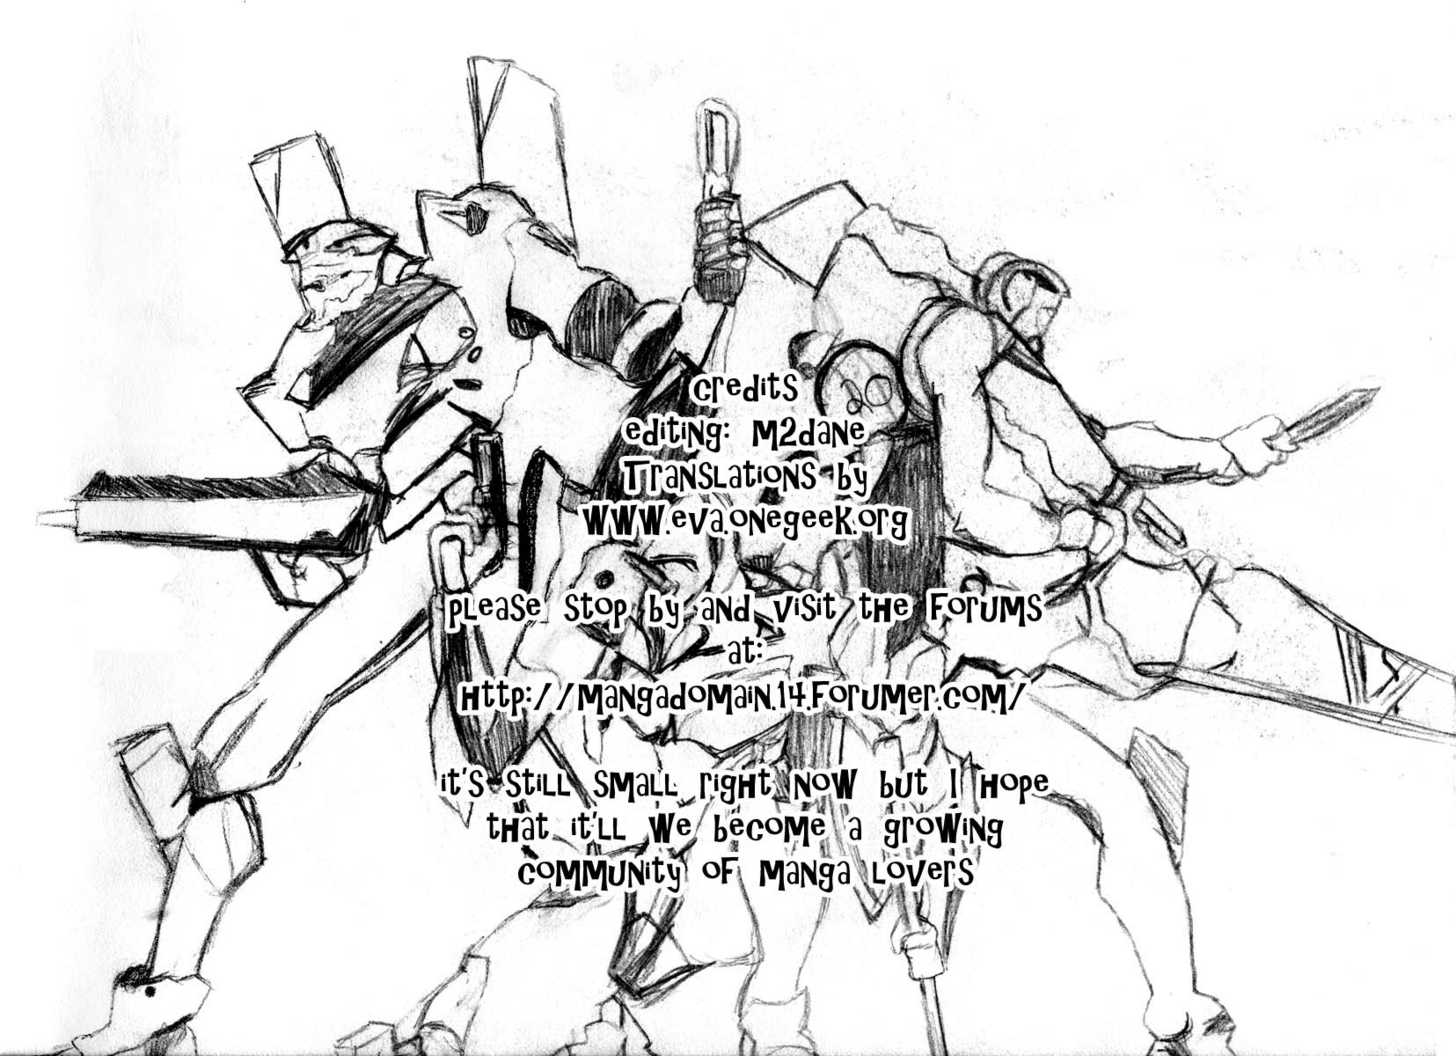 credits
editing: M2dane
Translations by
WWW.eva.onegeek.org
please stop by and visit the forums
at:
http://mangadomain.14.forumer.com/
it's still small right now but I hope
that it'll we become a growing
community of manga lovers